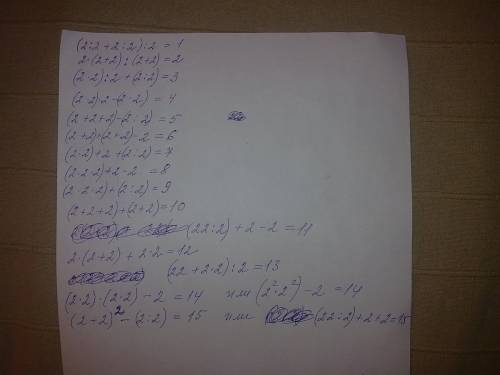 (2:2+2:2):2=1
2·(2+2):(2+2)=2
(2·2):2+(2:2)=3
(2·2)·2-(2·2)=4
(2+2+2)-(2:2)=5
(2+2)+(2+2)-2=6
(2·2)+2+(2:2)=7
(2·2·2)+2-2=8
(2·2·2)+(2:2)=9
(2+2+2)+(2+2)=10
(22:2)+2-2=11
2·(2+2)+2·2=12
(22+2·2):2=13
(2·2)·(2·2)-2=14 или (2²·2²)-2=14
(2+2)²-(2:2)=15 или (22:2)+2+2=15